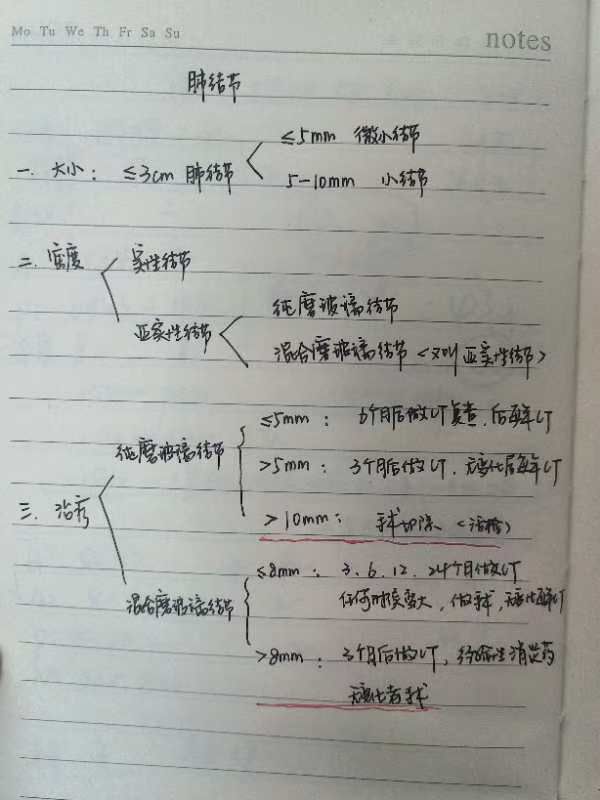 Mo Tu We Th Fr Sa Su
notes
肺结节
≤5mm 微小结节
一、大小: ≤3cm 肺结节
5-10mm 小结节
二、密度
实性结节
亚实性结节
纯磨玻璃结节
混合磨玻璃结节<又叫亚实性结节>
三、治疗
纯磨玻璃结节
≤5mm: 6个月后做CT复查,后每年CT
>5mm: 3个月后做CT,无变化后每年CT
>10mm: 手术切除<活检>
混合磨玻璃结节
≤8mm: 3、6、12、24个月做CT
任何时候变大,做手术,无变化每年CT
>8mm: 3个月后做CT,经验性消炎药
无变化者手术